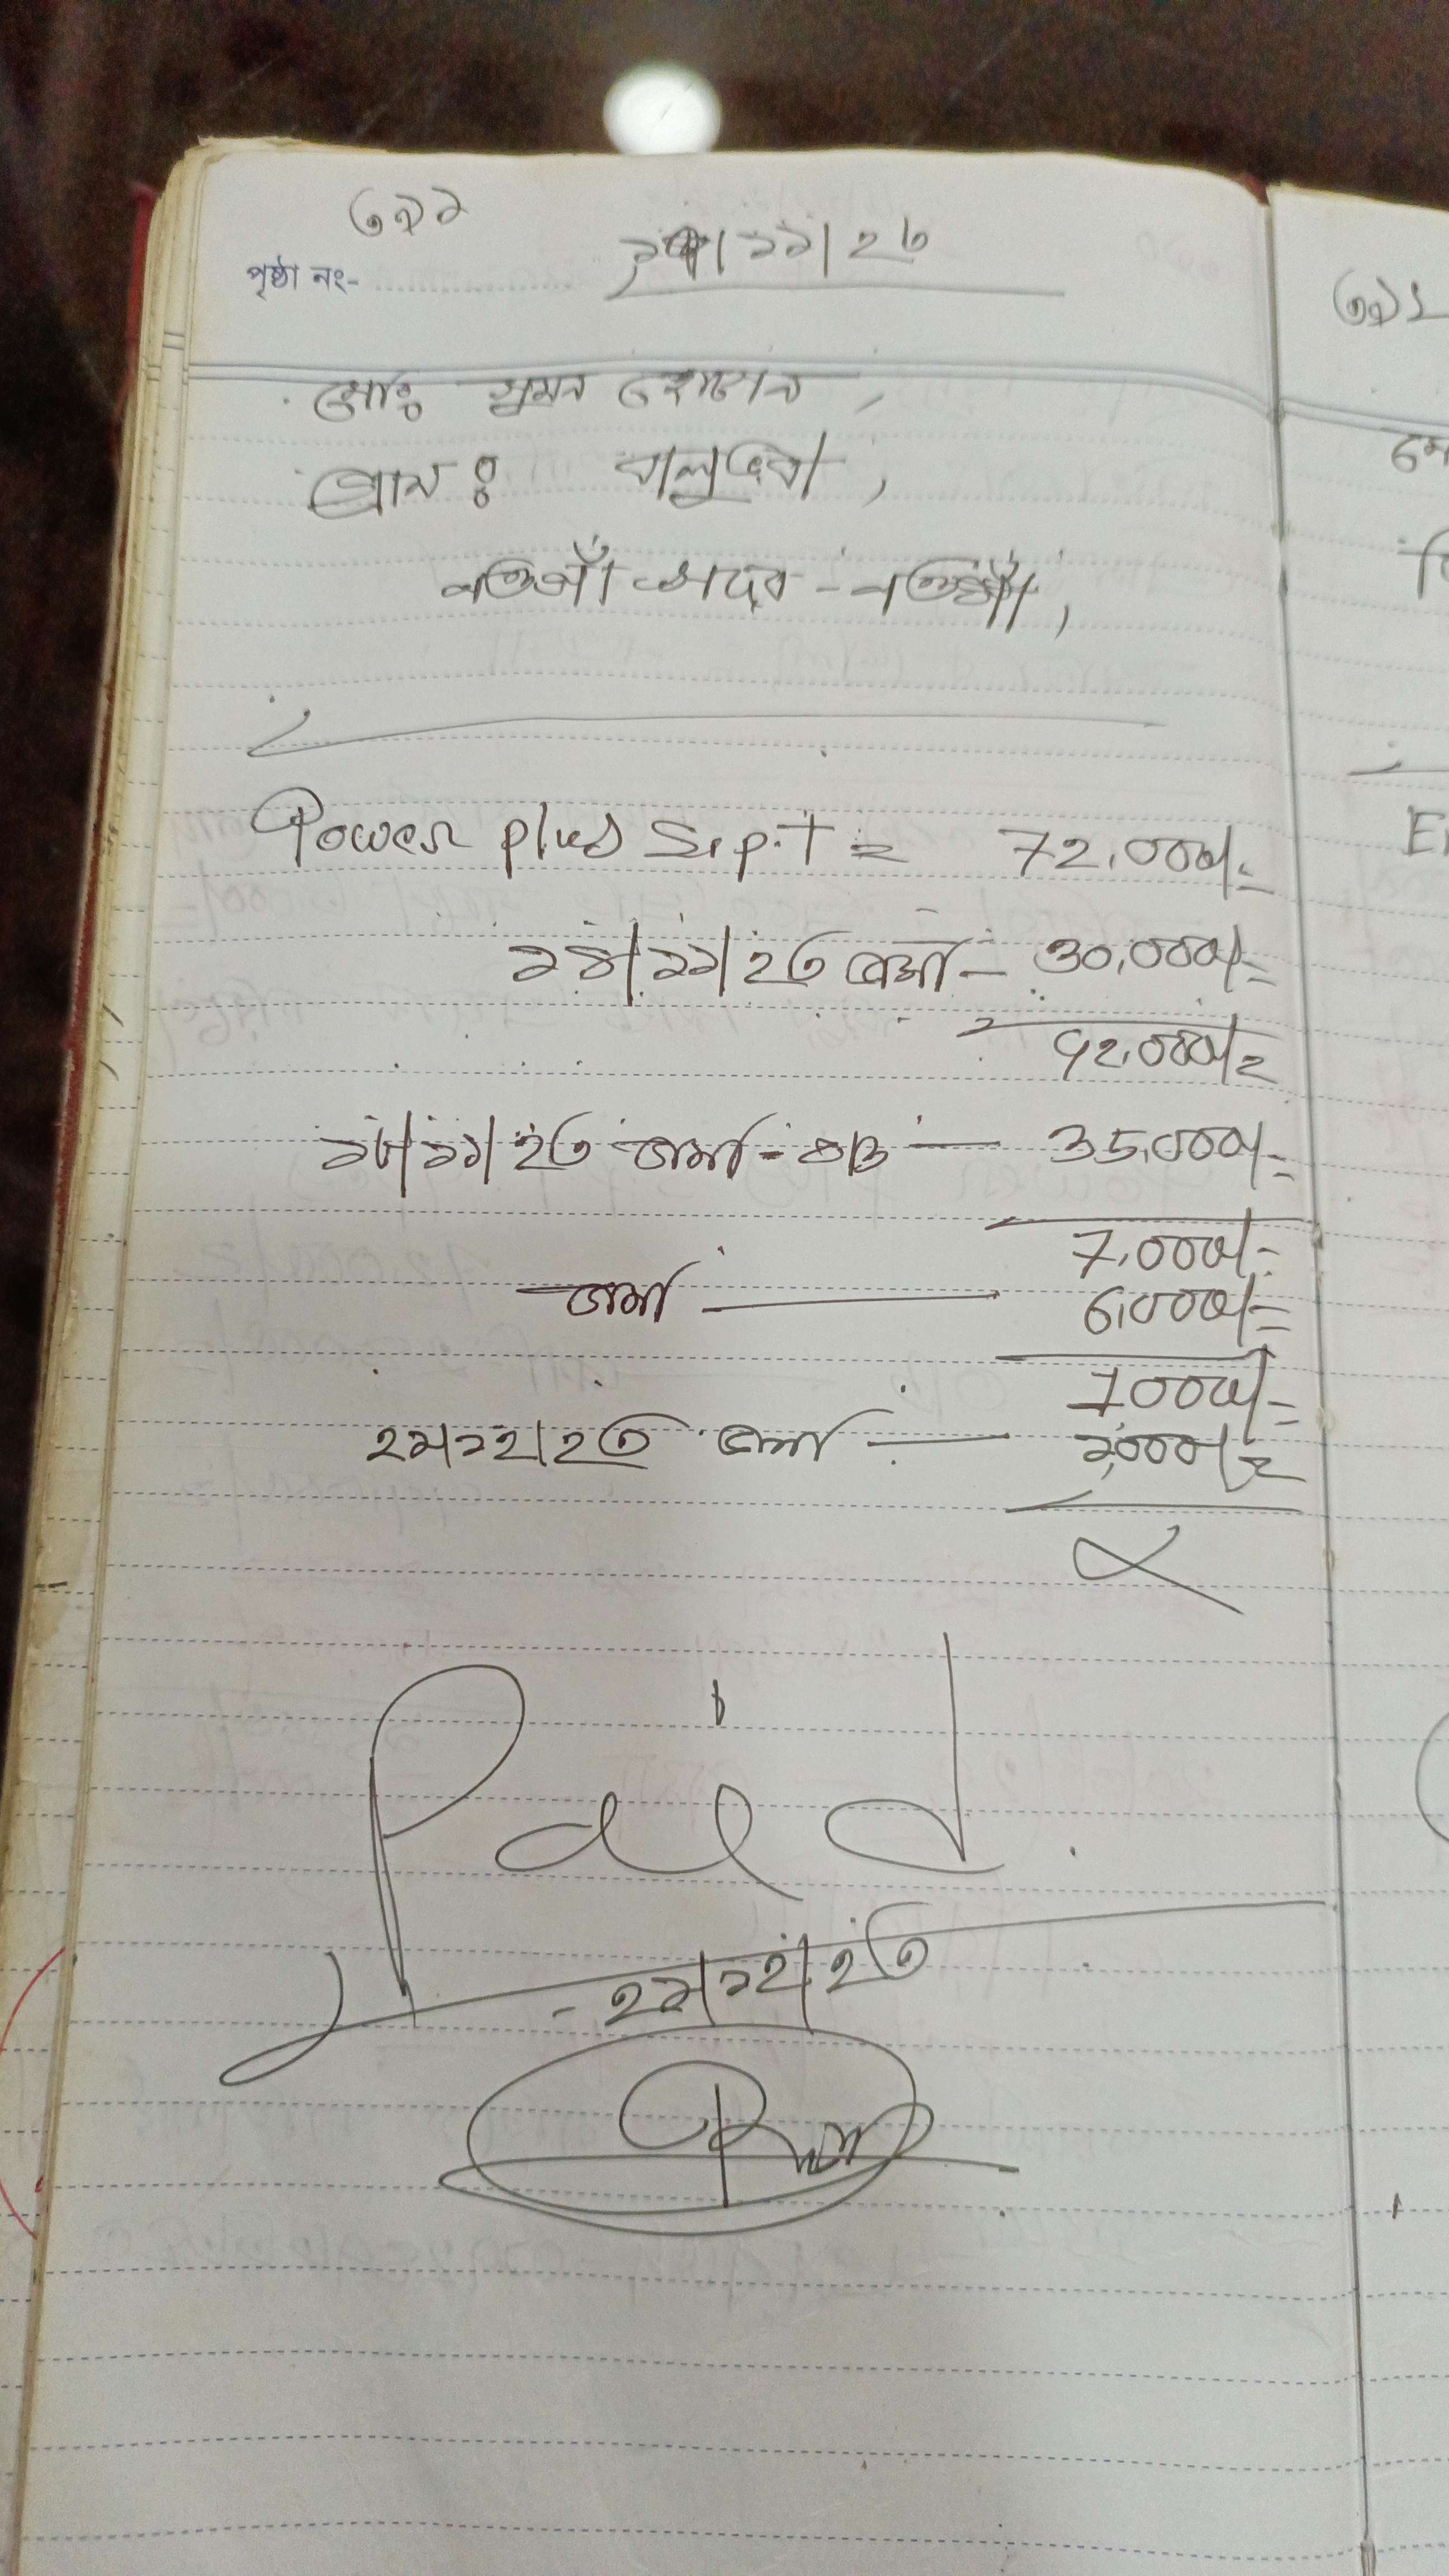 ৩৯১
পৃষ্ঠা নং-
/১১/২৩
মোঃ সুমন হোসেন,
গ্রাম ঃ বালুভরা,
নওগাঁ সদর - নওগাঁ,
Power plus Sep.T = 72,000/=
১৪/১১/২৩ জমা - 30,000/=
42,000/=
১৮/১১/২৩ জমা - 35,000/=
7,000/=
জমা — 6,000/=
1000/=
২৯/১২/২৩ জমা — ১,000/=
Paid
- ২৯/১২/২৩
৩৯২